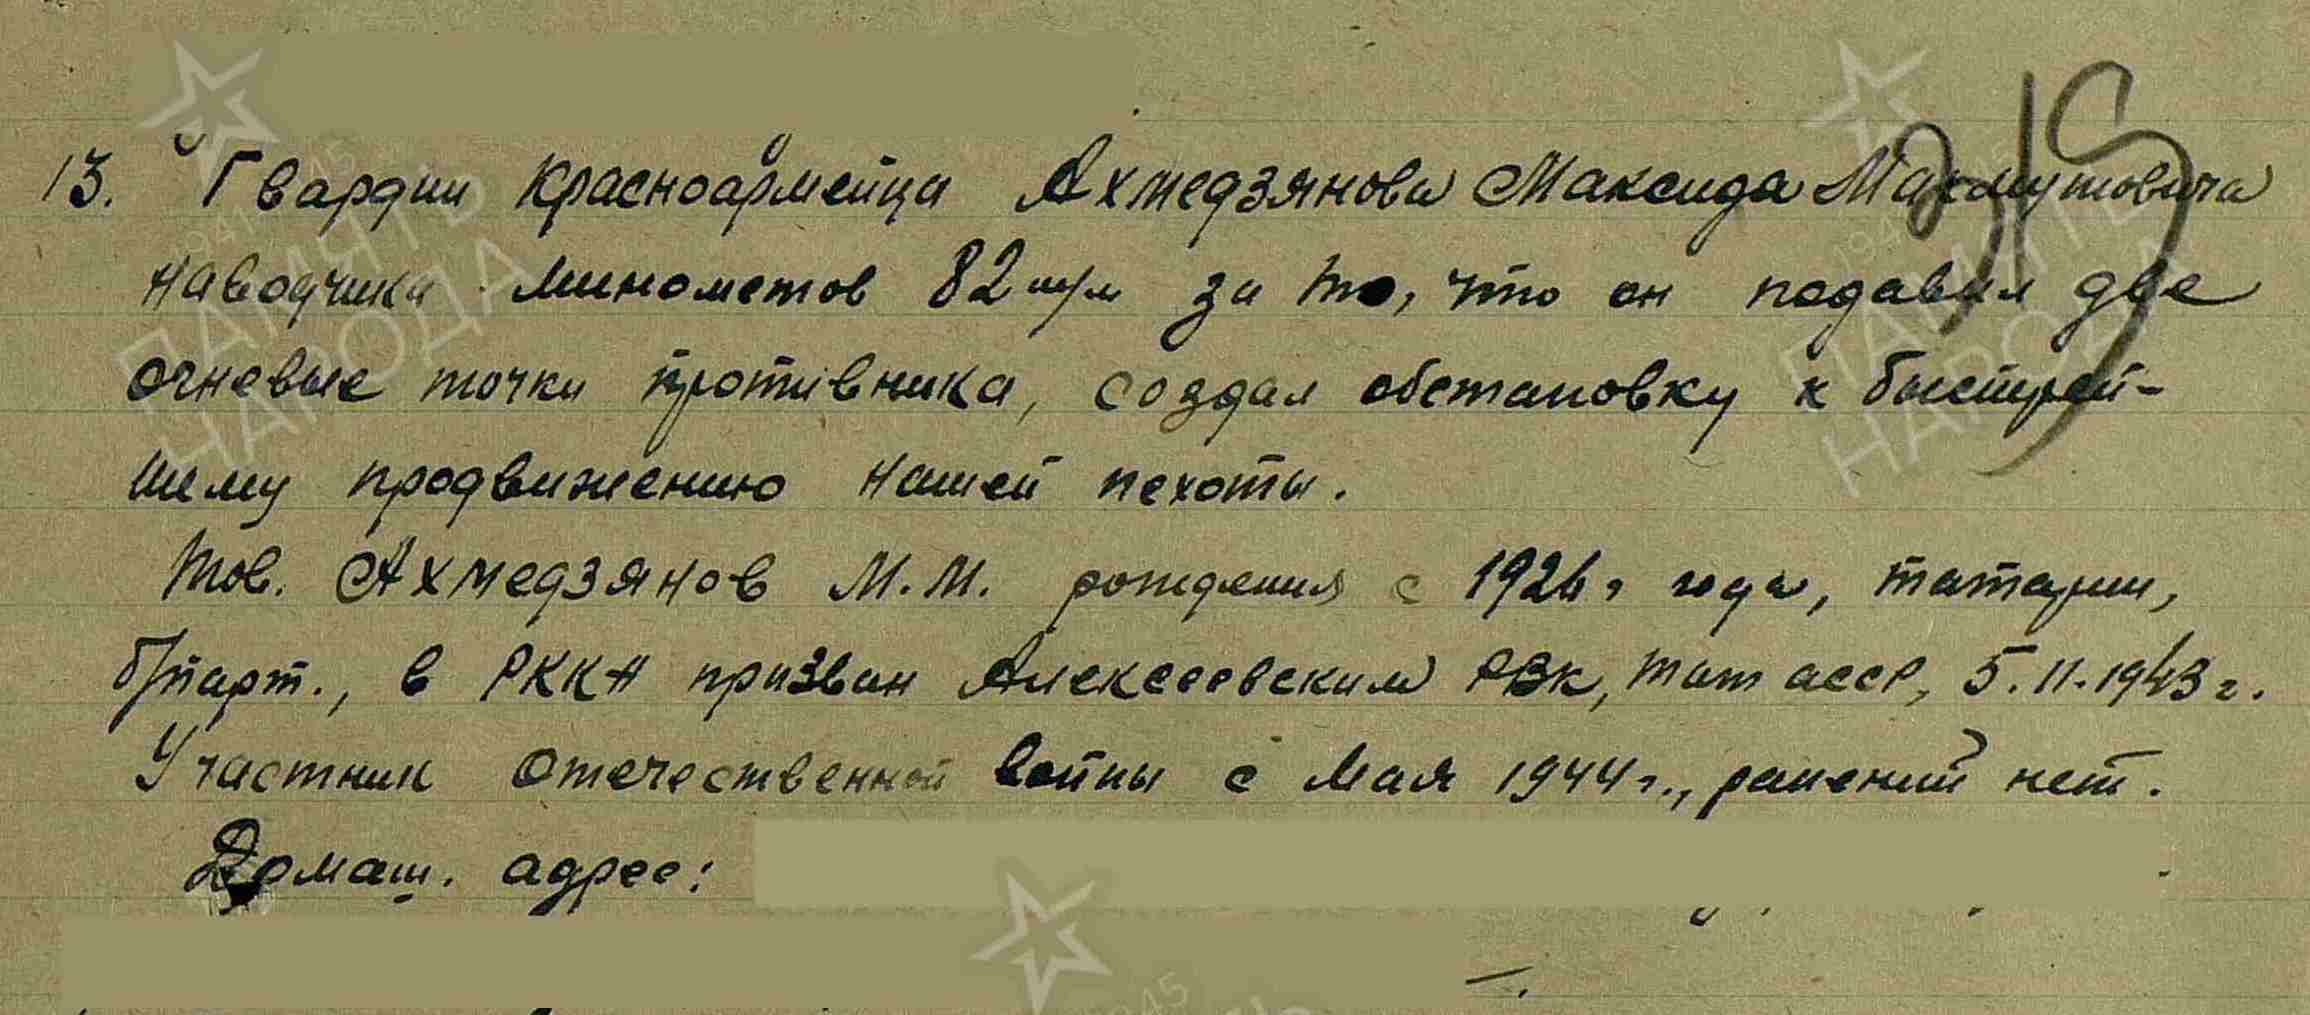 13. Гвардии красноармейца Ахмедзянова Максида Махмутовича
наводчика минометов 82 м/м за то, что он подавил две
огневые точки противника, создал обстановку к быстрей-
шему продвижению нашей пехоты.
Тов. Ахмедзянов М.М. рождения с года, татарин,
б/парт., в РККА призван Алексеевским РВК, Тат АССР, 5.11.1943 г.
Участник отечественной войны с мая 1944 г., ранений нет.
Домаш. адрес:
ПАМЯТЬ
НАРОДА
1941 1945
ПАМЯТЬ
НАРОДА
1945